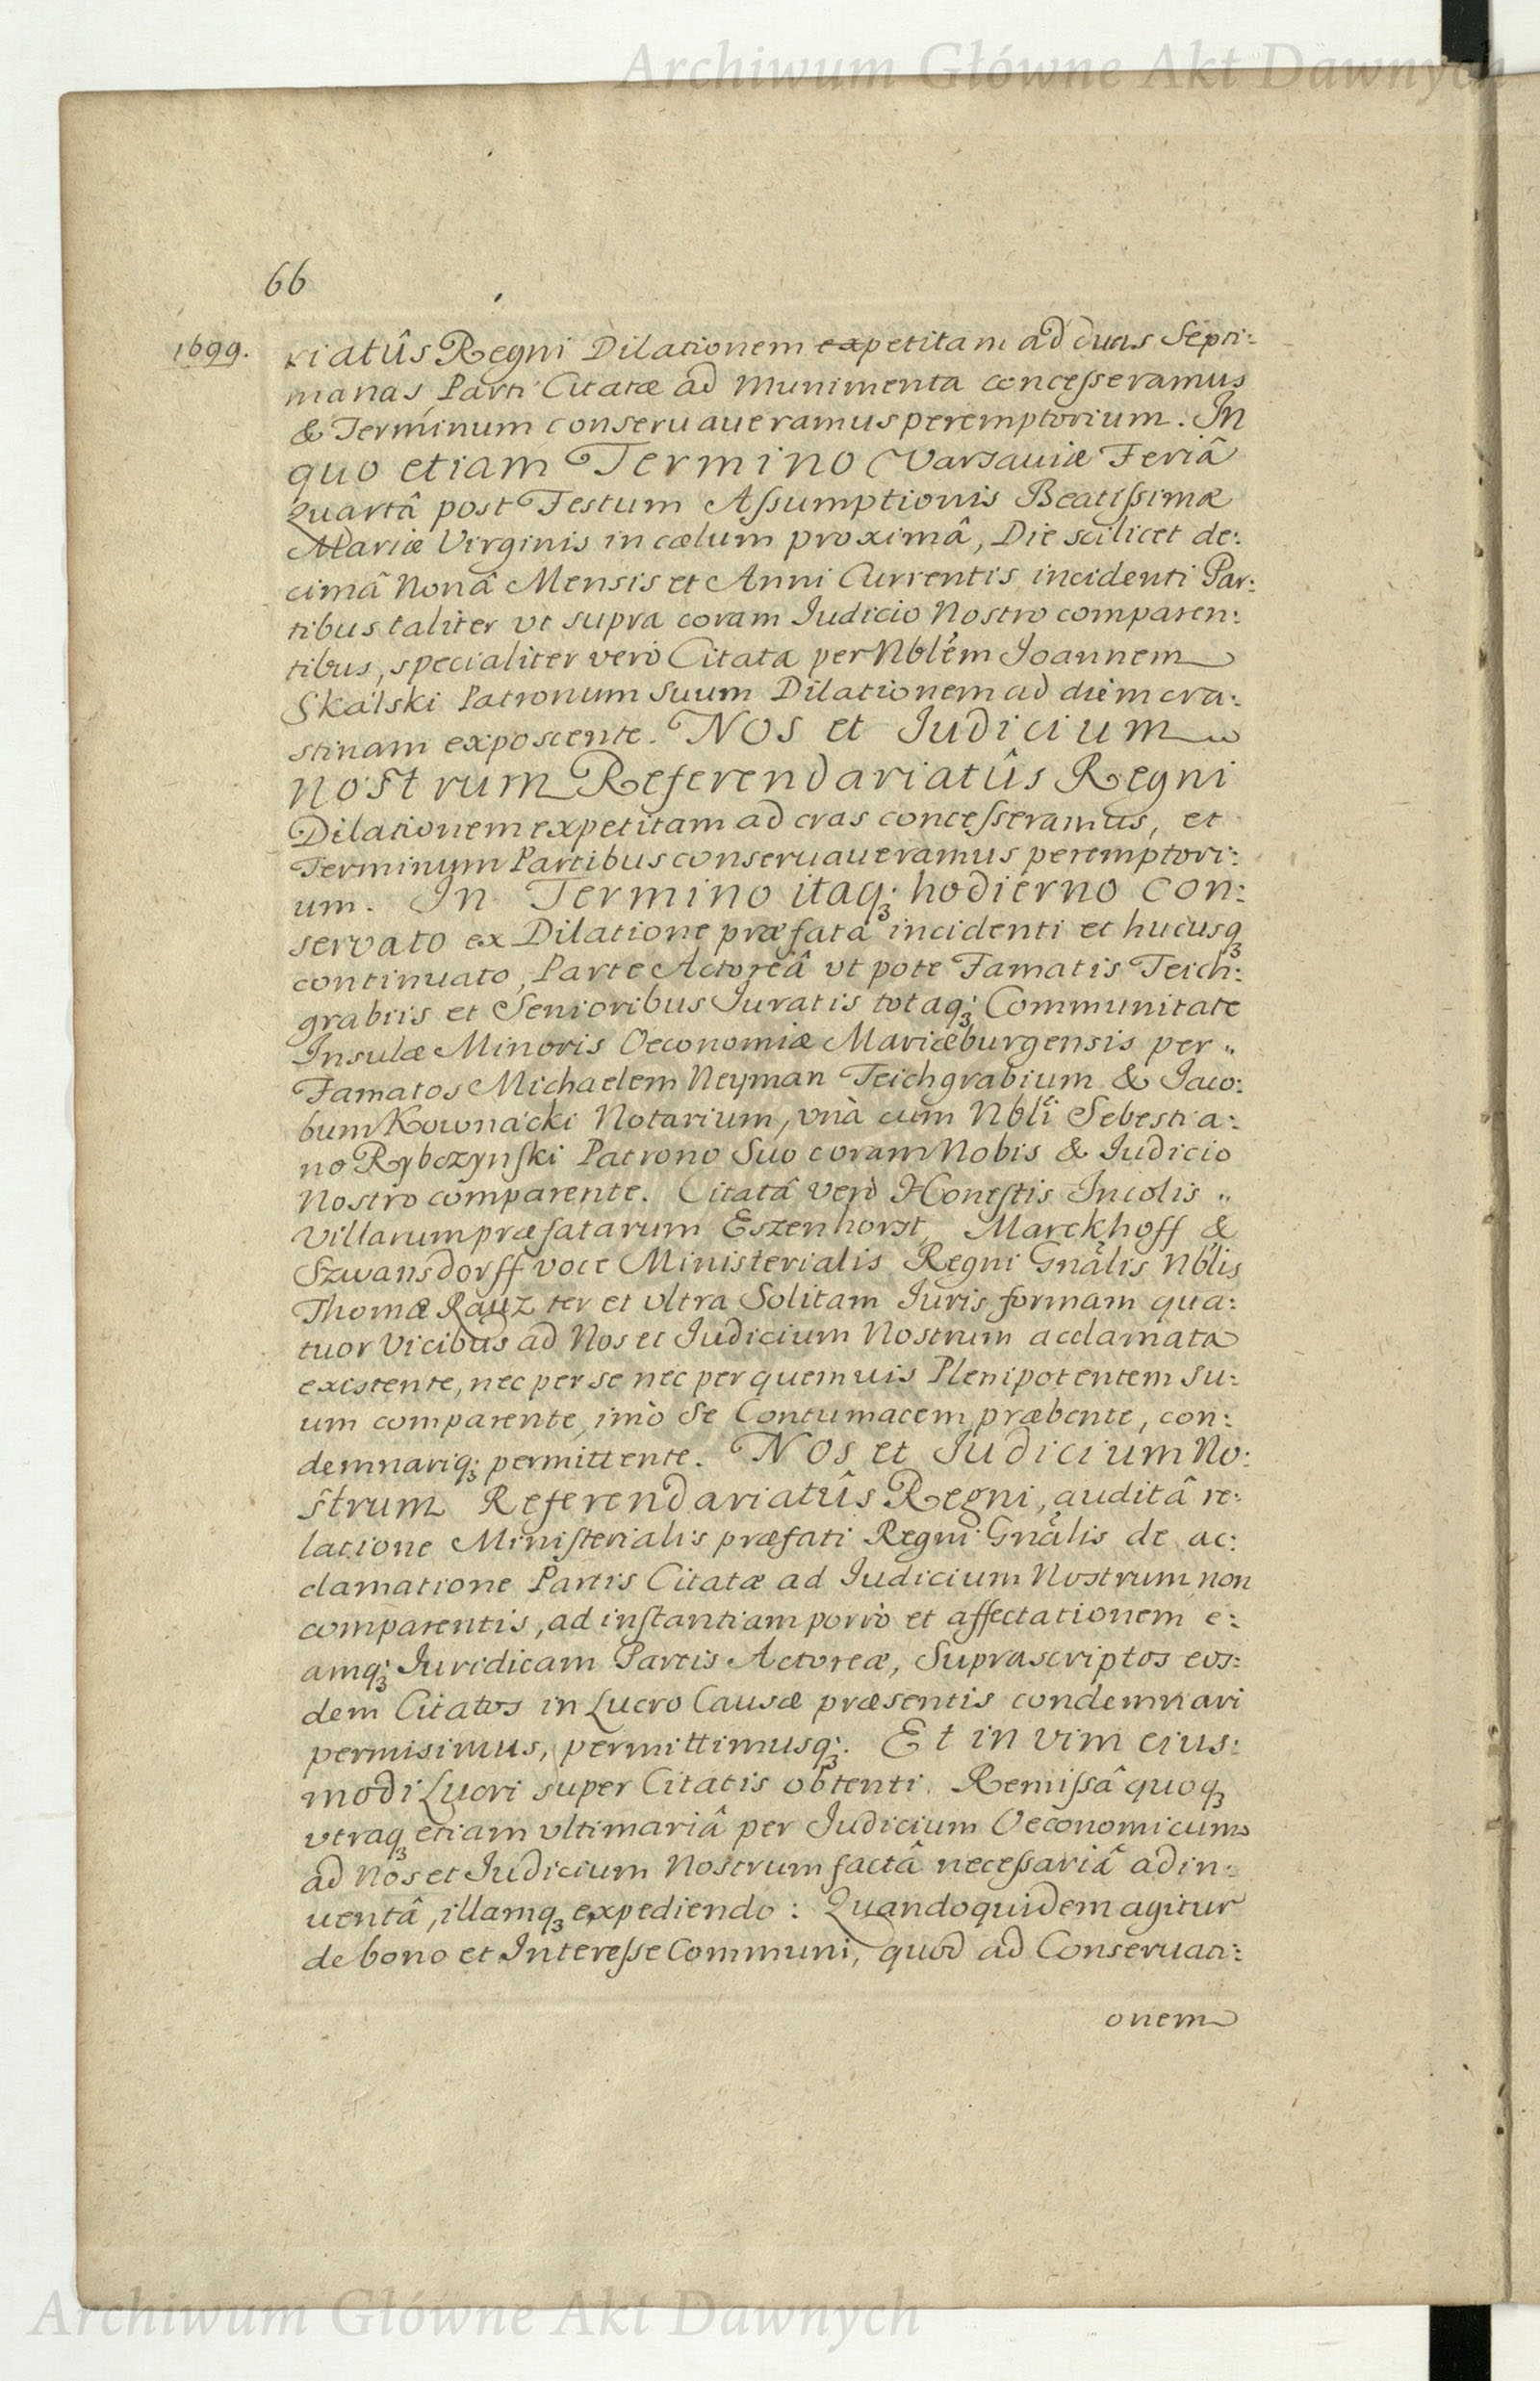 Archiwum Główne Akt Dawnych
66
1699.
riatûs Regni Dilationem expetitam ad duas Septi:
manas Parti Citatæ ad munimenta concesseramus
& Terminum conseruaueramus peremptorium. In
quo etiam Termino Varsauiæ Feriâ
Quartâ post Festum Assumptionis Beatissimæ
Mariæ Virginis in cælum proximâ, Die scilicet de:
cimâ Nonâ Mensis et Anni Currentis incidenti Par:
tibus taliter vt supra coram Iudicio Nostro comparen:
tibus, specialiter verò Citata per Nblem Ioannem
Skalski Patronum Suum Dilationem ad diem cra:
stinam exposcente. Nos et Iudicium
nostrum Referendariatûs Regni
Dilationem expetitam ad cras concesseramus, et
Terminum Partibus conseruaueramus peremptori:
um. In Termino itaq; hodierno con:
servato ex Dilatione præfatâ incidenti et hucusq;
continuato, Parte Actoreâ vt pote Famatis Teich:
grabiis et Senioribus Iuratis totaq; Communitate
Insulæ Minoris Oeconomiæ Mariæburgensis per „
Famatos Michaelem Neyman Teichgrabium & Iaco:
bum Kownacki Notarium, vnà cum Nbli Sebestia:
no Rybczynski Patrono Suo coram Nobis & Iudicio
Nostro comparente. Citatâ verò Honestis Incolis „
Villarum præfatarum Eszenhorst, Marckhoff &
Szwansdorff voce Ministerialis Regni Gnâlis Nblis
Thomæ Rauz ter et vltra Solitam Iuris formam qua:
tuor Vicibus ad Nos et Iudicium Nostrum acclamata
existente, nec per se nec per quemuis Plenipotentem Su:
um comparente, imò se Contumacem præbente, con:
demnariq; permittente. Nos et Iudicium No:
strum Referendariatûs Regni, auditâ re:
latione Ministerialis præfati Regni Gnâlis de ac:
clamatione Partis Citatæ ad Iudicium Nostrum non
comparentis, ad instantiam porrò et affectationem e:
amq; Iuridicam Partis Actoreæ, Suprascriptos eos:
dem Citatos in Lucro Causæ præsentis condemnari
permisimus, permittimusq;. Et in vim eius:
modi Lucri super Citatis obtenti. Remissâ quoq;
vtraq; etiam vltimariâ per Iudicium Oeconomicum
ad Nos et Iudicium Nostrum factâ necessariâ adin:
uentâ, illamq; expediendo: Quandoquidem agitur
de bono et Interesse Communi, quod ad Conseruati:
onem
Archiwum Główne Akt Dawnych